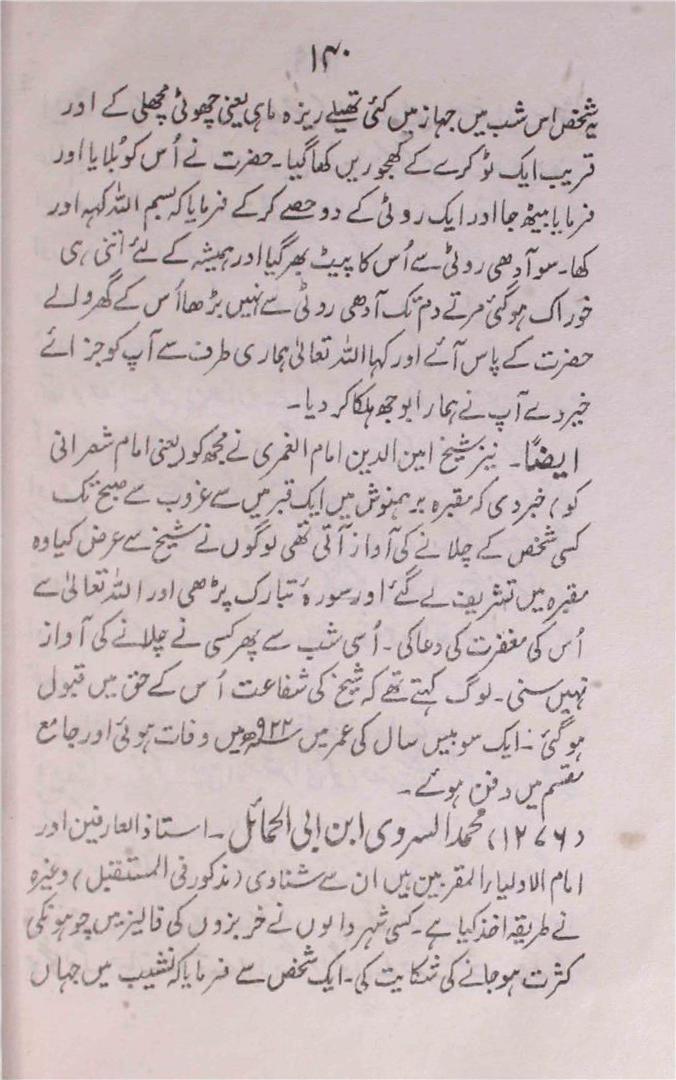 ۱۴۰
یہ شخص اس شب میں جہاز میں کئی تھیلے ریزہ ماہی یعنی چھوٹی مچھلی کے اور
قریب ایک ٹوکرے کے کھجوریں کھا گیا۔ حضرت نے اُس کو بُلایا اور
فرمایا بیٹھ جا اور ایک روٹی کے دو حصے کرکے فرمایا کہ بسم اللہ کہہ اور
کھا۔ سو آدھی روٹی سے اُس کا پیٹ بھر گیا اور ہمیشہ کے لئے اتنی ہی
خوراک ہوگئی مرتے دم تک آدھی روٹی سے نہیں بڑھا اُس کے گھر والے
حضرت کے پاس آئے اور کہا اللہ تعالیٰ ہماری طرف سے آپ کو جزائے
خیر دے آپ نے ہمارا بوجھ ہلکا کر دیا۔
ایضاً۔ نیز شیخ امین الدین امام الغمری نے مجھ کو (یعنی امام شعرانی
کو) خبر دی کہ مقبرہ برہمتوش میں ایک قبر میں سے غروب سے صبح تک
کسی شخص کے چلانے کی آواز آتی تھی لوگوں نے شیخ سے عرض کیا وہ
مقبرہ میں تشریف لے گئے اور سورۂ تبارک پڑھی اور اللہ تعالیٰ سے
اُس کی مغفرت کی دعا کی۔ اُسی شب سے پھر کسی نے چلانے کی آواز
نہیں سنی۔ لوگ کہتے تھے کہ شیخ کی شفاعت اُس کے حق میں قبول
ہوگئی:۔ ایک سو بیس سال کی عمر میں ۹۲۲ھ میں وفات ہوئی اور جامع
مقسم میں دفن ہوئے۔
(۱۲۷۶) محمد السروی ابن ابی الحمائل۔ استاذ العارفین اور
امام الاولیاء المقربین ہیں ان سے شناوی (مذکور فی المستقبل) وغیرہ
نے طریقہ اخذ کیا ہے۔ کسی شہر والوں نے خربزوں کی فالیز میں چوہونکی
کثرت ہوجانے کی شکایت کی۔ ایک شخص سے فرمایا کہ نشیب میں جہاں